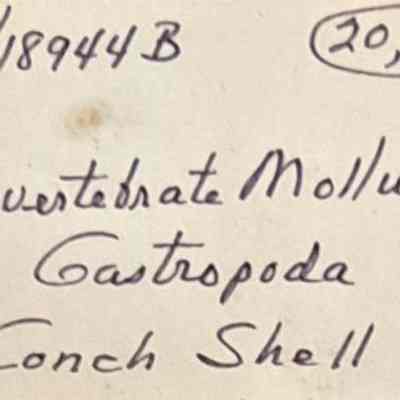 /18944B (20,
vertebrate Mollu
Gastropoda
Conch Shell